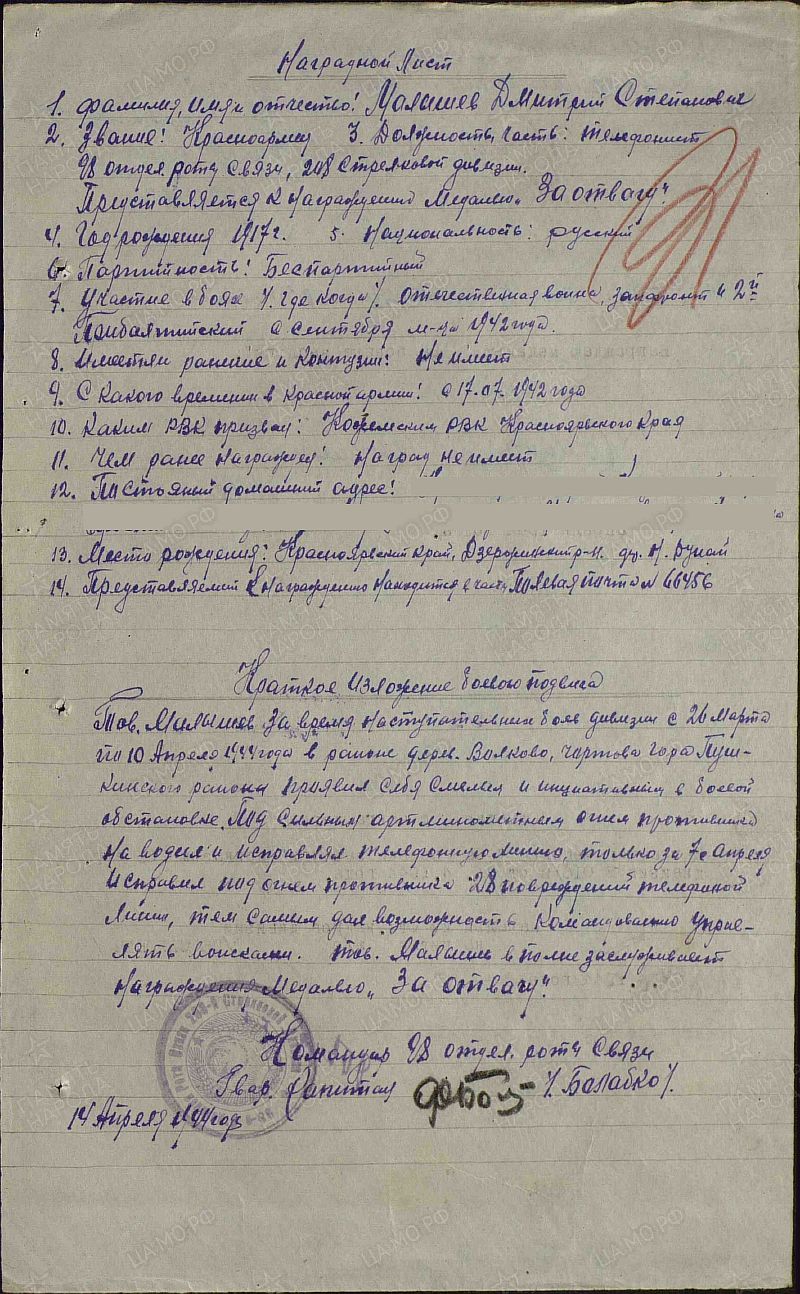 Наградной Лист
1. Фамилия, имя и отчество: Малышев Дмитрий Степанович
2. Звание: Красноармеец 3. Должность, часть: телефонист
98 отдел. роты Связи, 208 Стрелковой дивизии.
Представляется к Награждению Медалью „За отвагу".
4. Год рождения 1917 г. 5. Национальность: русский
6. Партийность: Беспартийный
7. Участие в боях /. где когда /. отечественная война, зап. фронт и 2й
Прибалтийский с сентября м-ца 1942 года.
8. Имеет ли ранение и контузии: Не имеет
9. С Какого времени в Красной армии: с 17.07.1942 года
10. Каким РВК призван: РВК Красноярского Края
11. Чем ранее награжден: Наград не имеет
12. Постояный домашний адрес:
13. Место рождения: Красноярский край, Дзержинский р-н. д. Н.
14. Представляемый к Награждению находится в части Полевая почта № 66456
Краткое Изложение боевого подвига
Тов. Малышев за время наступательных боев дивизии с 26 Марта
по 10 Апреля 1944 года в районе дерев. Волково, Чертова Гора Пуш-
кинского района проявил Себя Смелым и инициативным в боевой
обстановке. Под Сильным артминометным огнем противника
наводил и исправлял телефонную линию, только за 7е апреля
Исправил под огнем противника 28 повреждений телефоной
Линии, тем Самым дал возможность Командованию Управ-
лять войсками. тов. Малышев вполне заслуживает
награждения Медалью „За отвагу".
Командир 98 отдел. роты Связи
Гвар. Капитан /. Балабко /.
14 Апреля 1944 год